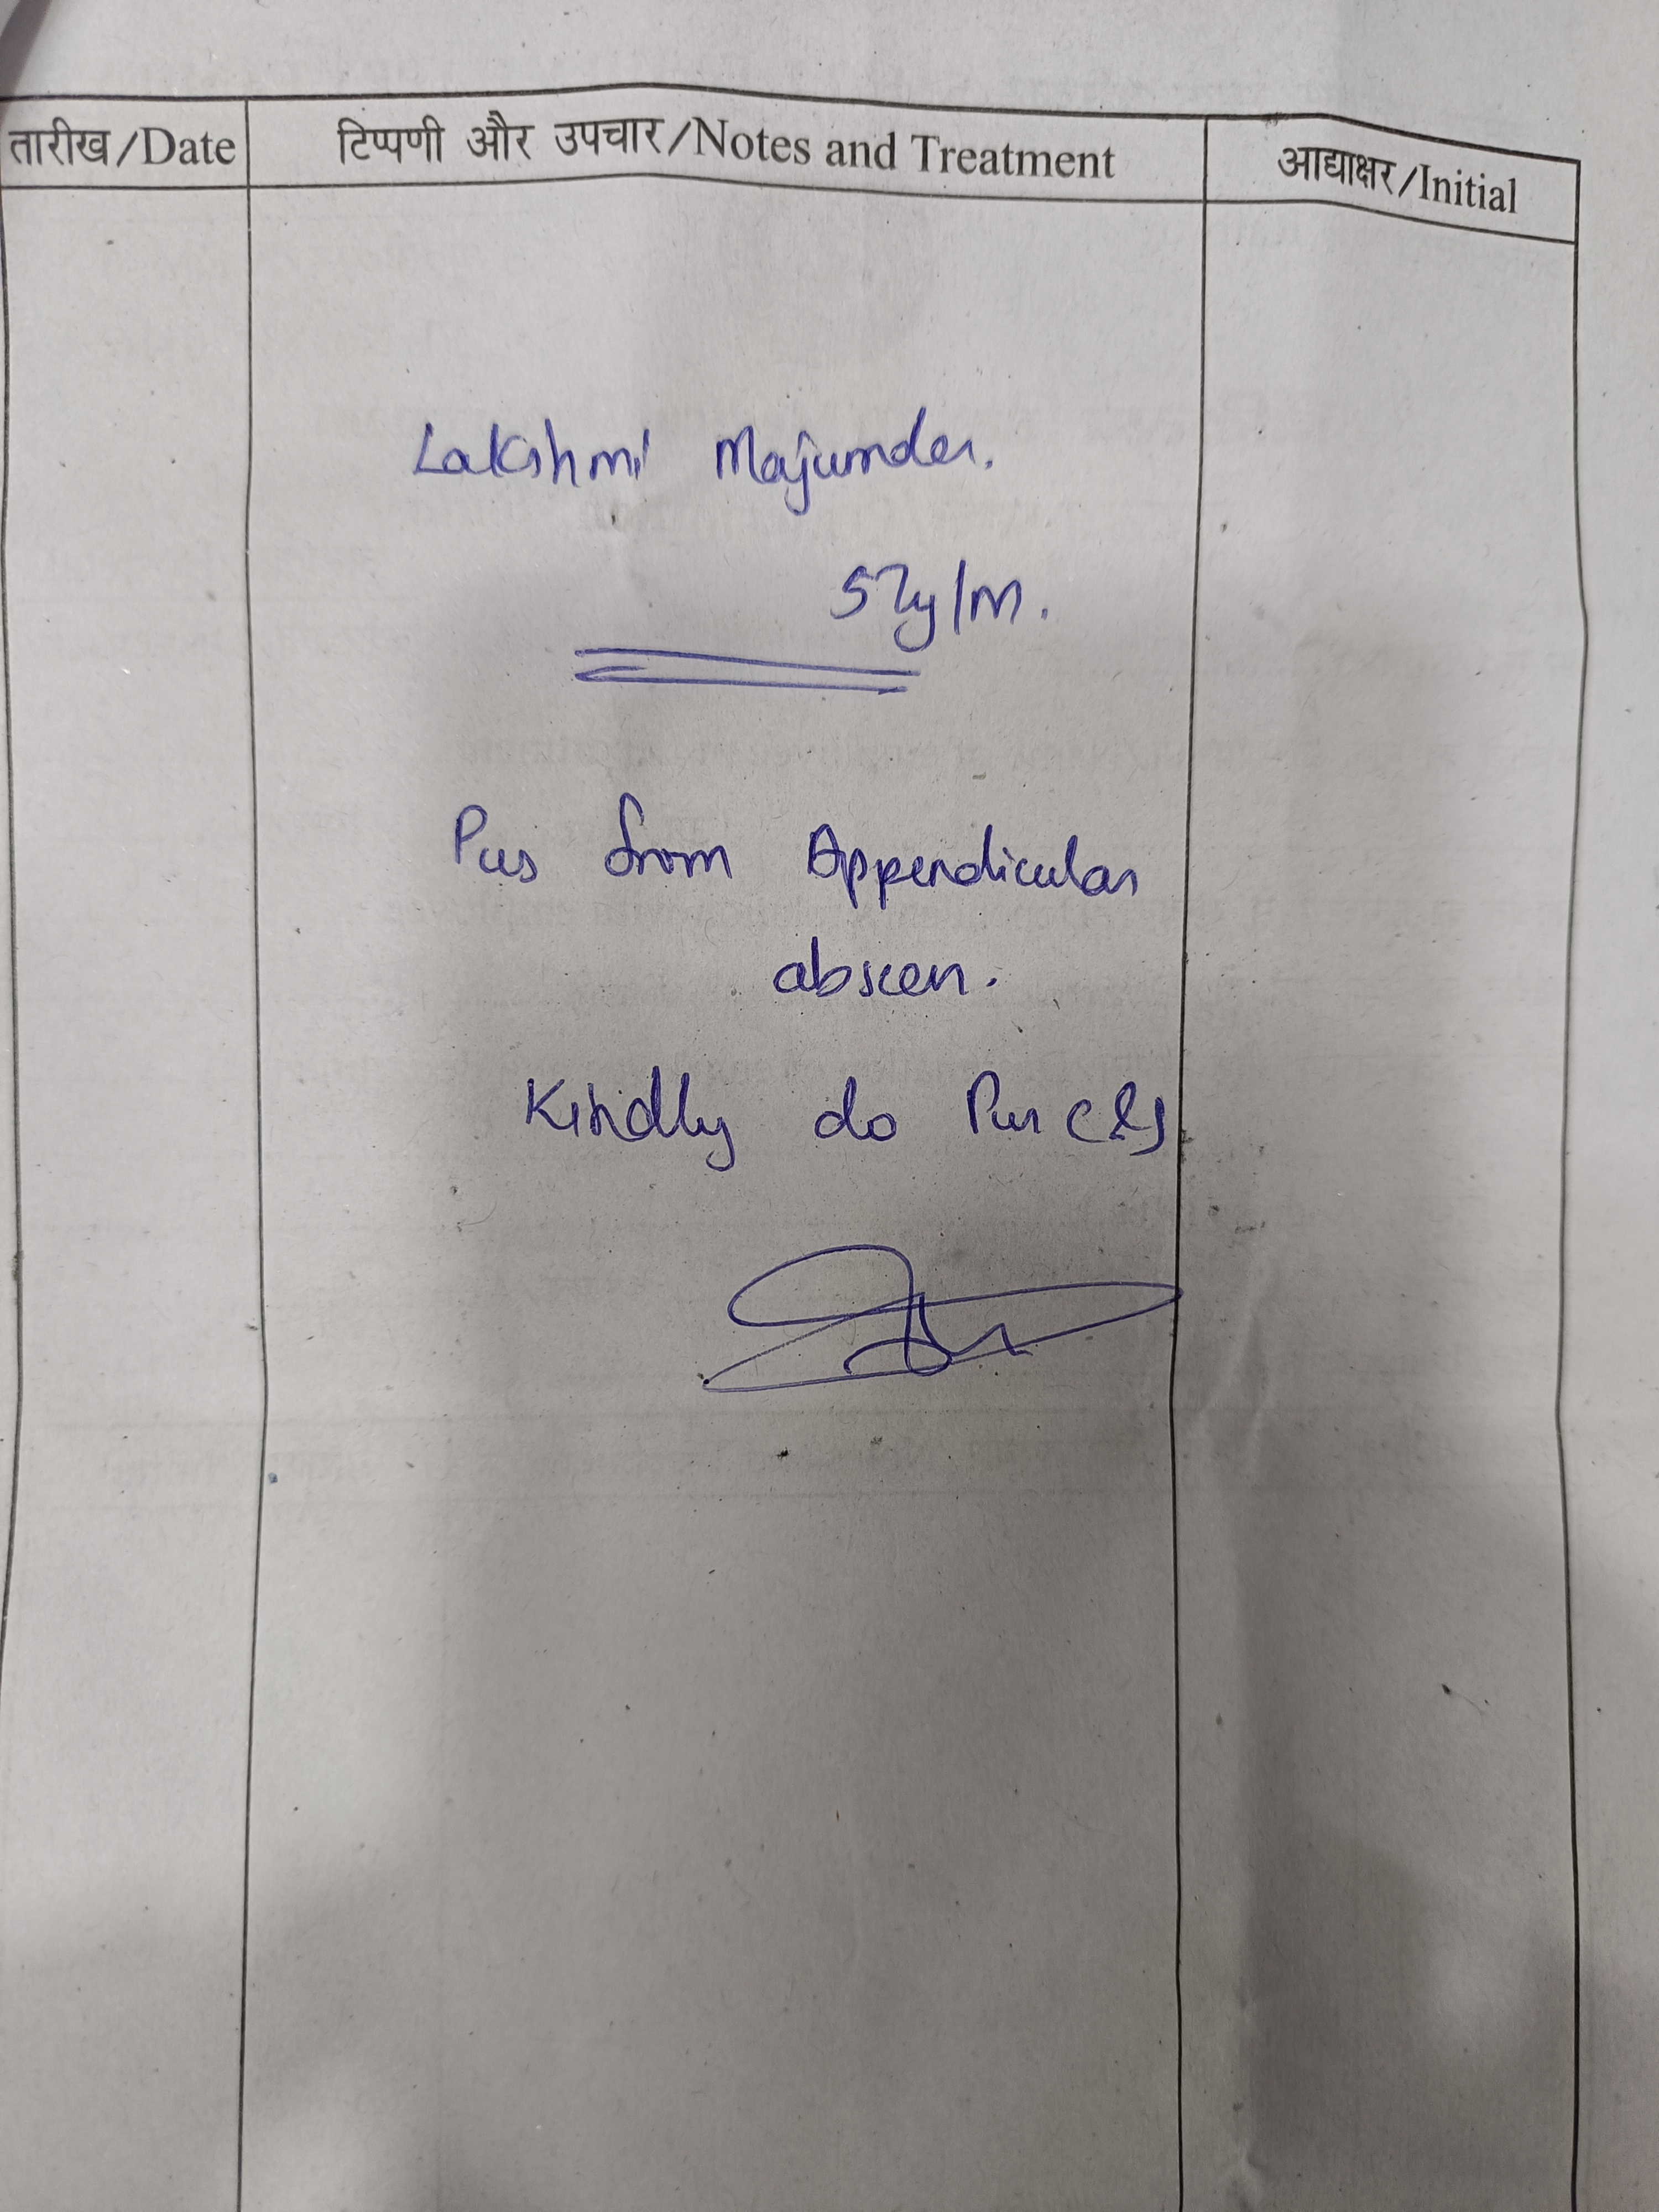 तारीख/Date टिप्पणी और उपचार/Notes and Treatment आद्याक्षर/Initial
Lakshmi Majumder.
57y/M.
Pus from Appendicular
abscess.
Kindly do Pus C&S